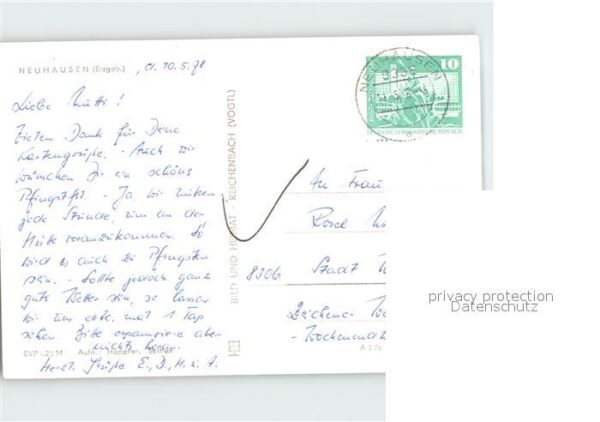 NEUHAUSEN (Erzgeb.)
, d. 10.5.78
Liebe Mutti!
Vielen Dank für Deine
Kartengrüße. - Auch wir
wünschen Dir ein schönes
Pfingstfst. - Ja, wir nutzen
jede Stunde, um an der
Hütte voranzukommen. So
wird es auch zu Pfingsten
sein. - Sollte jedoch ganz
gutes Wetter sein, so lassen
wir uns evtl. mal 1 Tag
sehen. Bitte organisiere aber
nichts
Herzl. Grüße E., D., H. u. A.
EVP -,25 M
BILD UND HEIMAT · REICHENBACH (VOGTL)
A 3/76
10
NEUHAUSEN
DEUTSCHE DEMOKRATISCHE REPUBLIK
An Frau
Rosel
8206 Stadt
Zeichene-
-Wochenend
privacy protection
Datenschutz